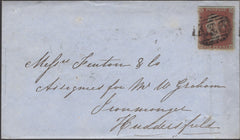 Messrs Fenton & Co
Assignees for Mr W Graham
Ironmonger
Huddersfield